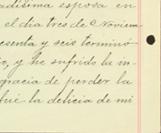 adísima esposa en
el día tres de Noviem
esenta y seis terminó
o, y he sufrido la in
gracia de perder la
fué la delicia de mi